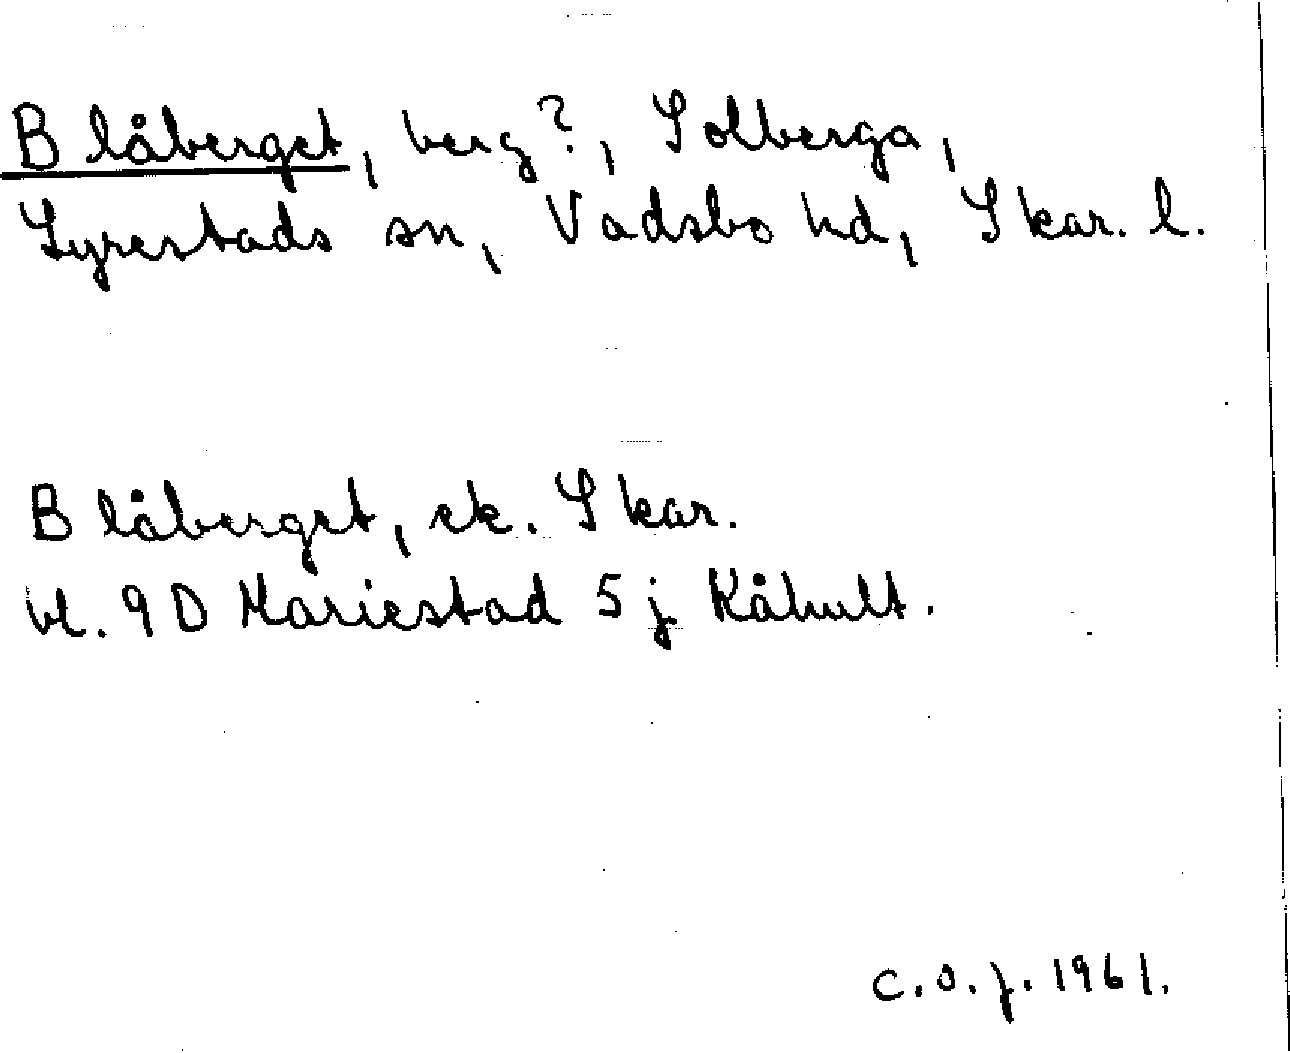 Blåberget, berg?, Solberga,
Lyrestads sn, Vadsbo hd, Skar. l.
Blåberget, ek. Skar.
bl. 9D Mariestad 5j Kåhult.
C.O.J. 1961.